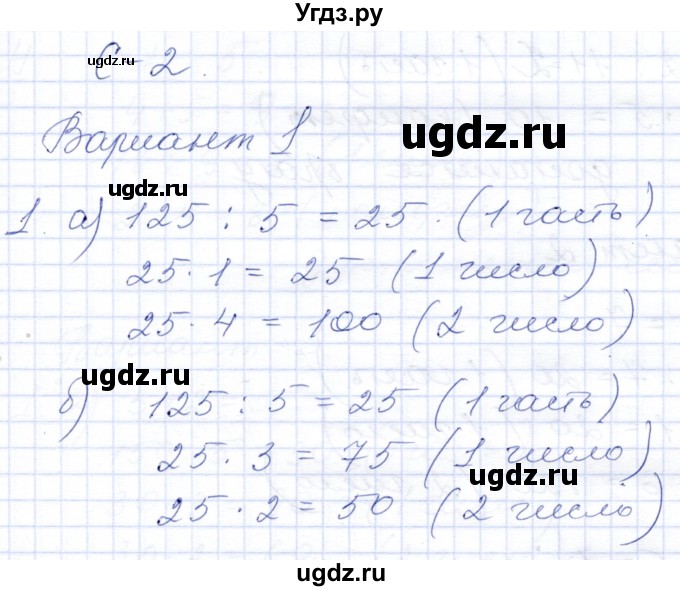 Угдз.ру
С-2.
Вариант 1
ugdz.ru
ugdz.ru
1. а) 125 : 5 = 25. (1 часть)
25 · 1 = 25 (1 число)
25 · 4 = 100 (2 число)
ugdz.ru
б) 125 : 5 = 25 (1 часть)
25 · 3 = 75 (1 число)
ugdz.ru
ugdz.ru
25 · 2 = 50 (2 число)
ugdz.ru